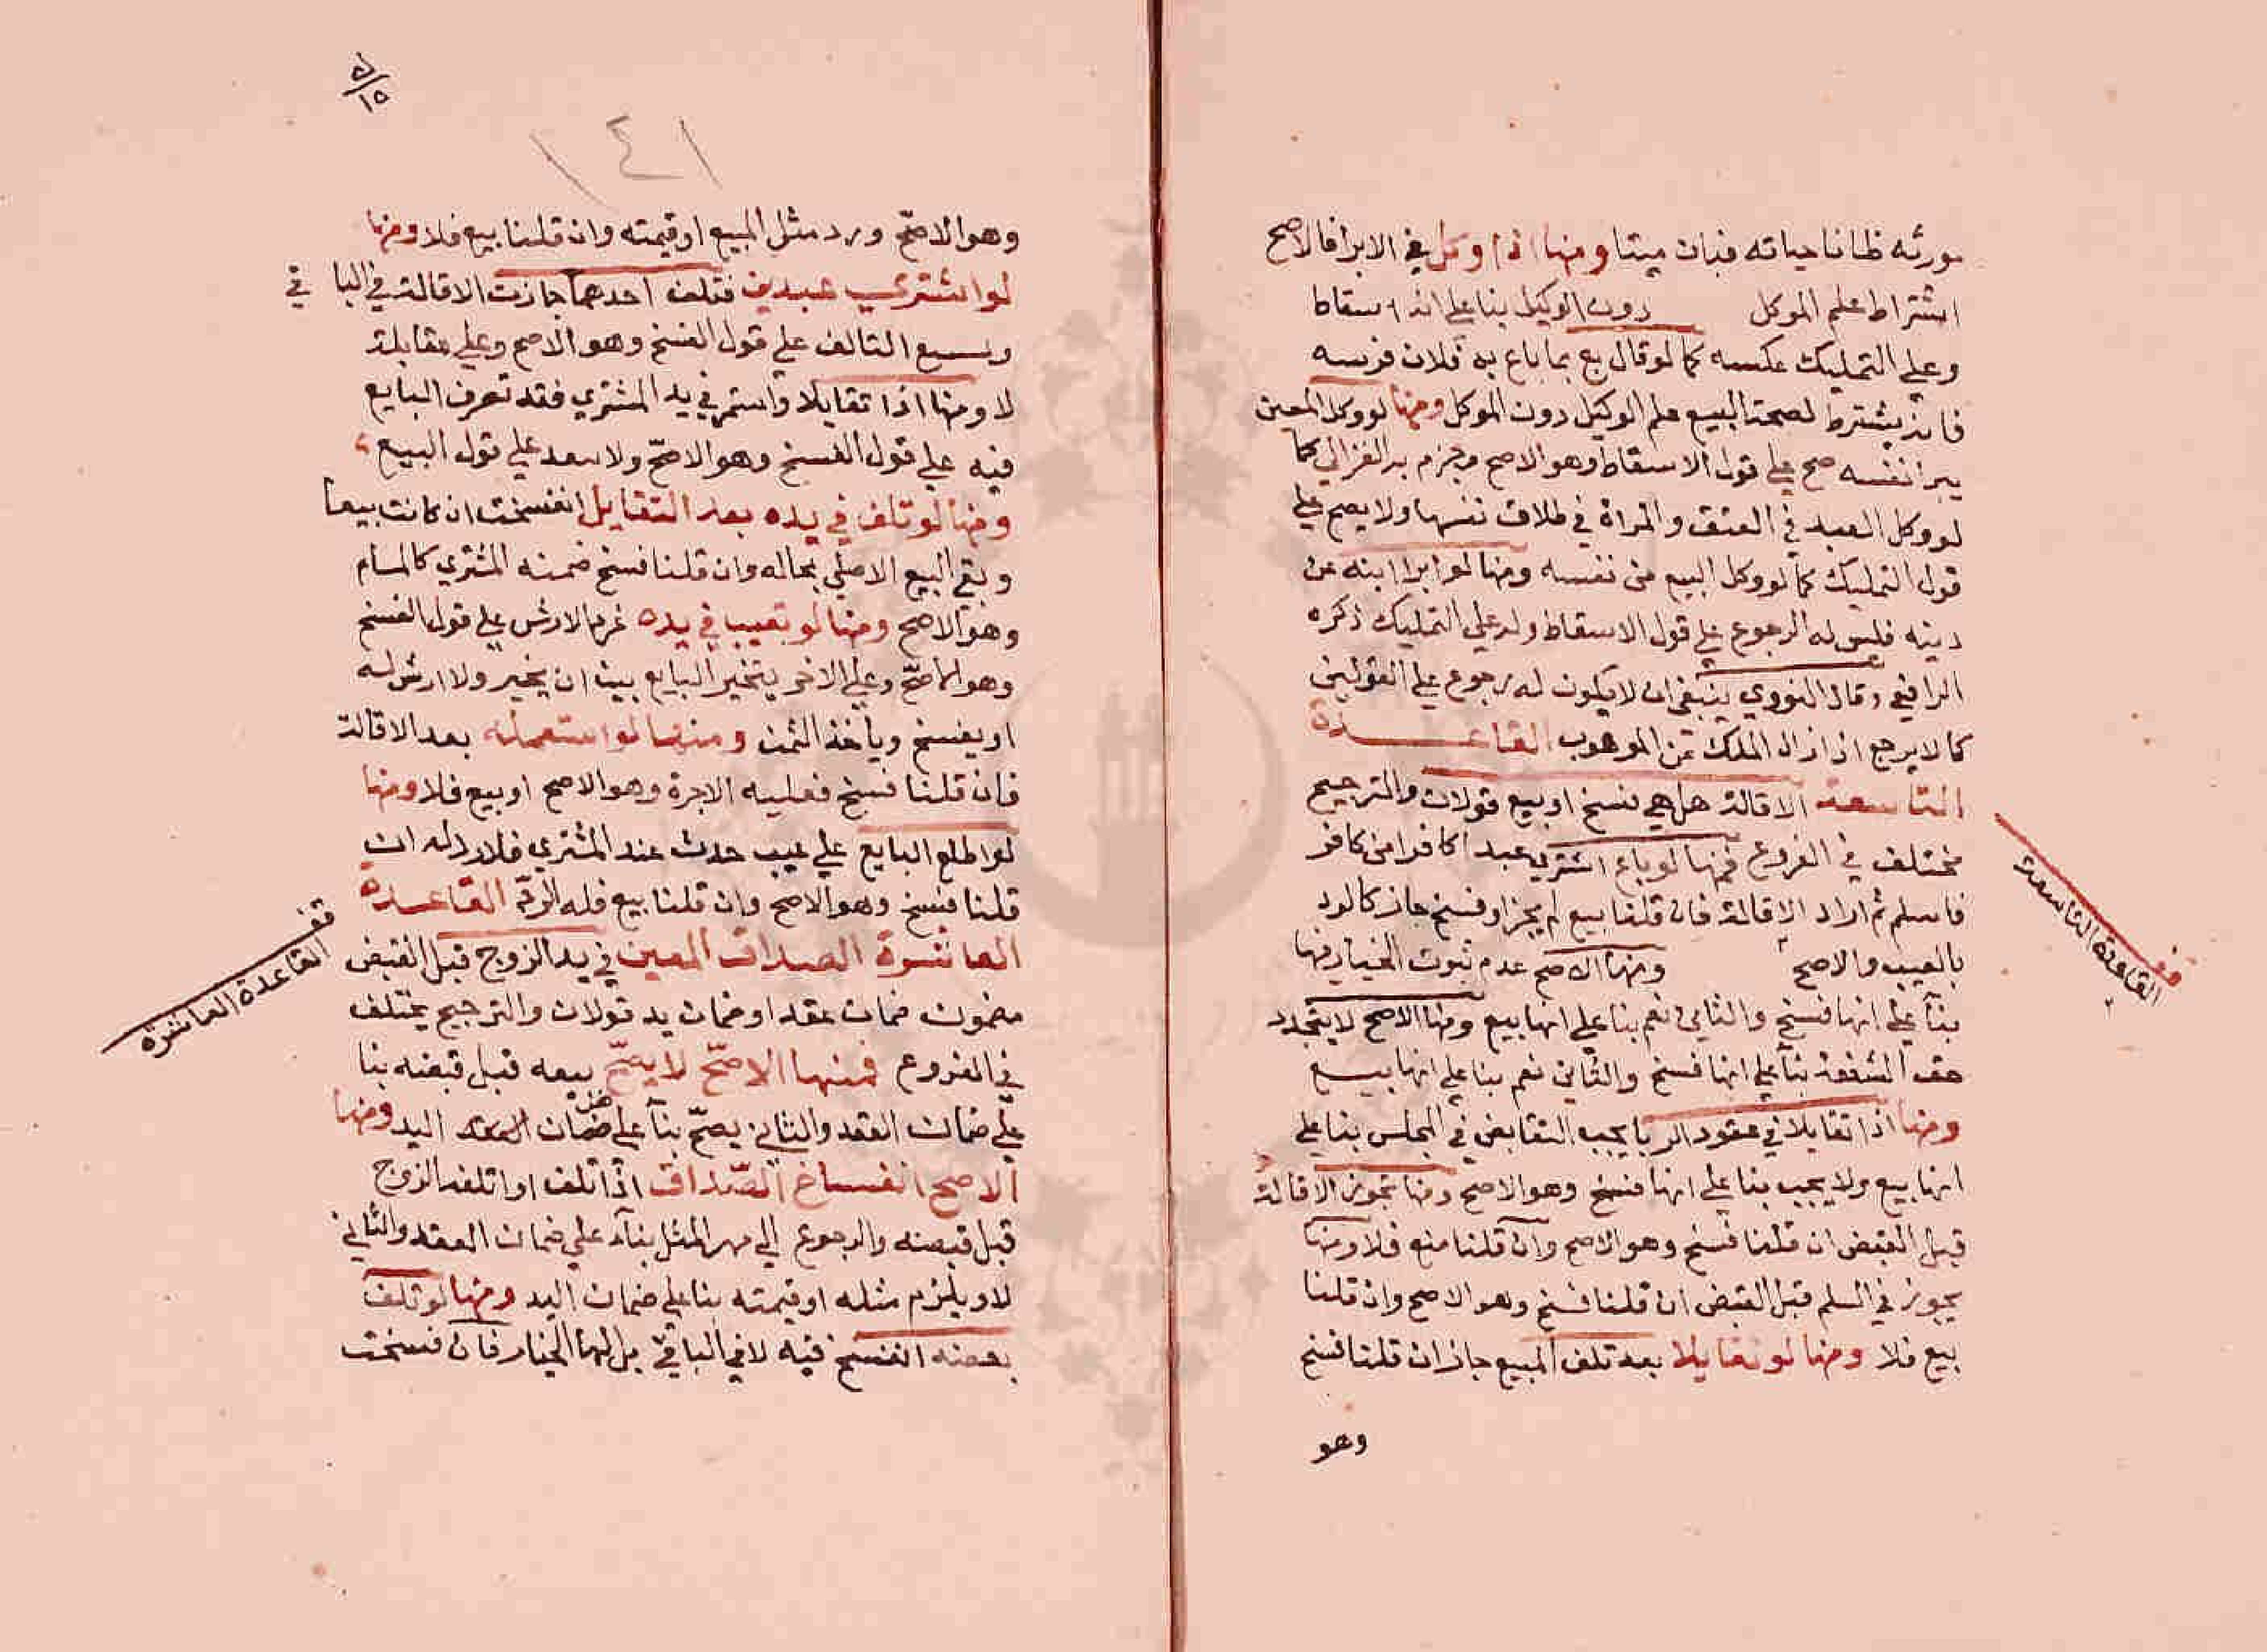 مورثه ظانا حياته فبان ميتا ومنها اذا وكل في الابرا فالاصح
اشتراط علم الموكل دون الوكيل بنا على انه اسقاط
وعلى التمليك عكسه كما لو قال بع بما باع به فلان فرسه
فانه يشترط لصحة البيع علم الوكيل دون الموكل ومنها لو وكل المعين
يبرا نفسه صح على قول الاسقاط وهو الاصح وجزم به الغزالي كما
لو وكل العبد في العتق والمراة في طلاق نفسها ولا يصح على
قول التمليك كما لو وكل البيع من نفسه ومنها لو ابرا ابنه عن
دينه فليس له الرجوع على قول الاسقاط وله على التمليك ذكره
الرافعي وقال النووي ينبغي ان لا يكون له رجوع على القولين
كما لا يرجع اذا زال الملك عن الموهوب القاعدة
التاسعة الاقالة هل هي فسخ او بيع قولان والترجيح
مختلف في الفروع فمنها لو باع اشترى عبدا كافرا من كافر
فاسلم ثم اراد الاقالة فان قلنا بيع لم يجز او فسخ جاز كالود
بالعيب والاصح ومنها الاصح عدم ثبوت الخيار فيها
بنآ على انها فسخ والثاني نعم بنا على انها بيع ومنها الاصح لا يتجدد
حق الشفعة بنآ على انها فسخ والثاني نعم بنا على انها بيع
ومنها اذا تقايلا في عقود الربا يجب التقابض في المجلس بنا على
انها بيع ولا يجب بنا على انها فسخ وهو الاصح ومنها تجوز الاقالة
قبل القبض ان قلنا فسخ وهو الاصح وان قلنا منع فلا ومنها
يجوز في السلم قبل القبض ان قلنا فسخ وهو الاصح وان قلنا
بيع فلا ومنها لو تقايلا بعد تلف المبيع جاز ان قلنا فسخ
وهو
قف
القاعدة التاسعة
٥/١٥
١٤١
وهو الاصحّ ورد مثل المبيع او قيمته وان قلنا بيع فلا ومنها
لو اشتري عبدين فتلف احدهما جازت الاقالة في البا في
ويسع التالف على قول الفسخ وهو الاصح وعلى مقابلة
لا ومنها اذا تقايلا واستمر في يد المشتري فقد تعرف البايع
فيه على قول الفسخ وهو الاصحّ ولا سعد على قول البيع
ومنها لو تلف في يده بعد التقايل انفسخت ان كانت بيعا
وبقي البيع الاصلي بحاله وان قلنا فسخ ضمنه المشتري كالمسام
وهو الاصح ومنها لو تعيب في يده غرم الارش على قول الفسخ
وهو الاصحّ وعلى الاخر يتخير البايع بين ان يخير ولا ارش له
او يفسخ وياخذ الثمن ومنها لو استعمله بعد الاقالة
فان قلنا فسخ فعليه الاجرة وهو الاصح او بيع فلا ومنها
لو اطلع البايع على عيب حدث عند المشتري فلا رد له ان
قلنا فسخ وهو الاصح وان قلنا بيع فله الردّ القاعدة
العاشرة الصداق المعين في يد الزوج قبل القبض
مضمون ضمان عقد او ضمان يد قولان والترجيح مختلف
في الفروع فمنها الاصحّ لا يصحّ بيعه قبل قبضه بنا
على ضمان العقد والثاني يصحّ بنآ على ضمان اليد ومنها
الاصح انفساخ الصّداق اذا تلف او اتلفه الزوج
قبل قبضه والرجوع الى مهر المثل بنآء على ضمان العقد والثاني
لا ويلزم مثله او قيمته بنا على ضمان اليد ومنها لو تلف
بعضه انفسخ فيه لا في الباقي بل لها الخيار فان فسخت
قف
القاعدة العاشرة